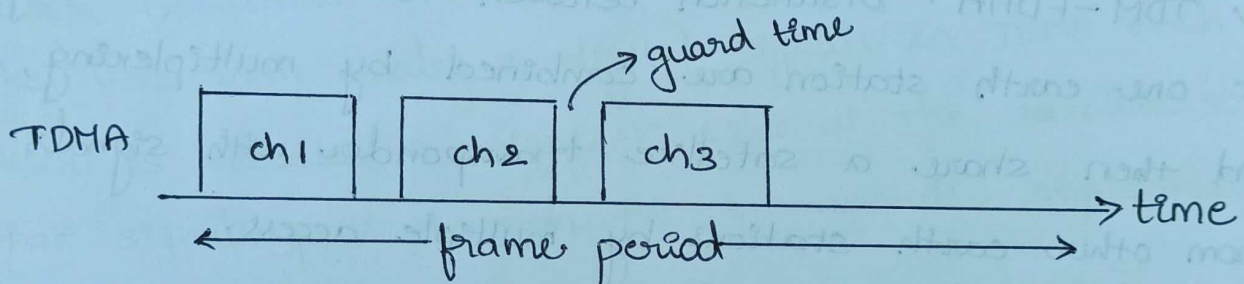 guard time
TDMA ch1 ch2 ch3
time
frame period